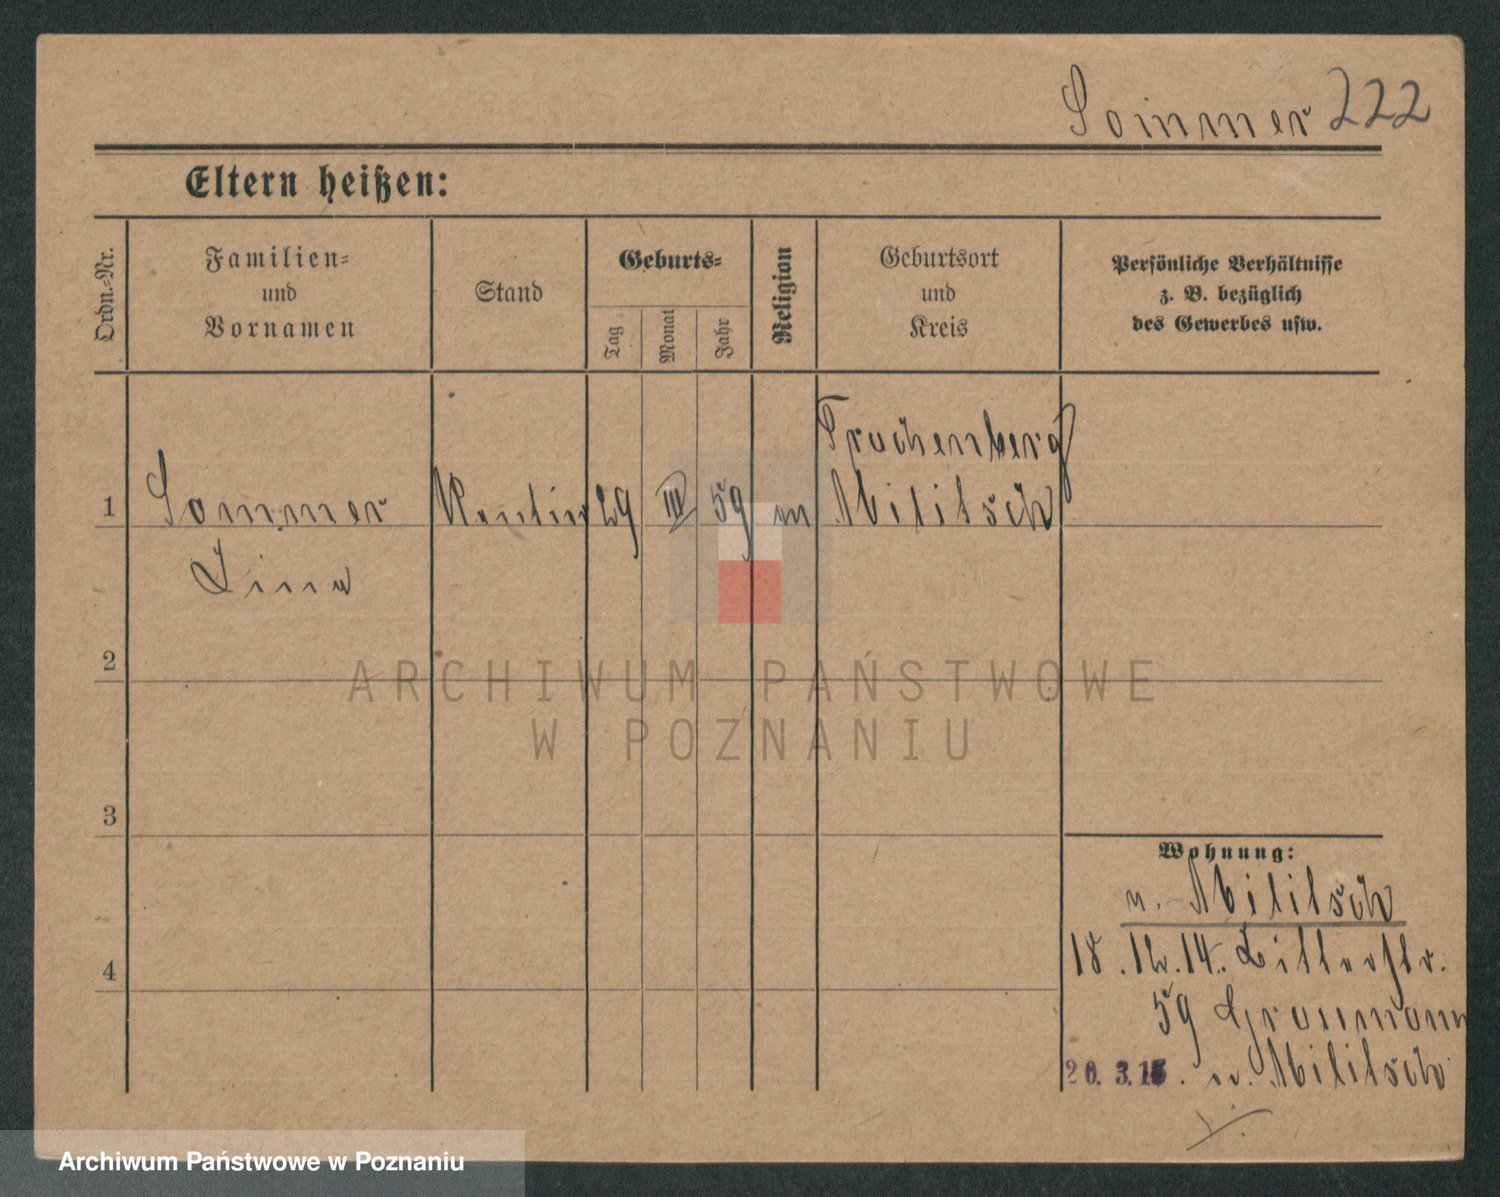 Sommer 222
Eltern heißen:
Ordn.-Nr.
Familien-
und
Vornamen
Stand
Geburts-
Tag
Monat
Jahr
Religion
Geburtsort
und
Kreis
Persönliche Verhältnisse
z. B. bezüglich
des Gewerbes usw.
Trachenberg
1 Sommer Rentier 29 III 59 Militsch
Lina
2
ARCHIWUM PAŃSTWOWE
W POZNANIU
3
Wohnung:
Militsch
18.12.14. Ritterstr.
59 Graumann
20.3.15. Militsch
4
Archiwum Państwowe w Poznaniu